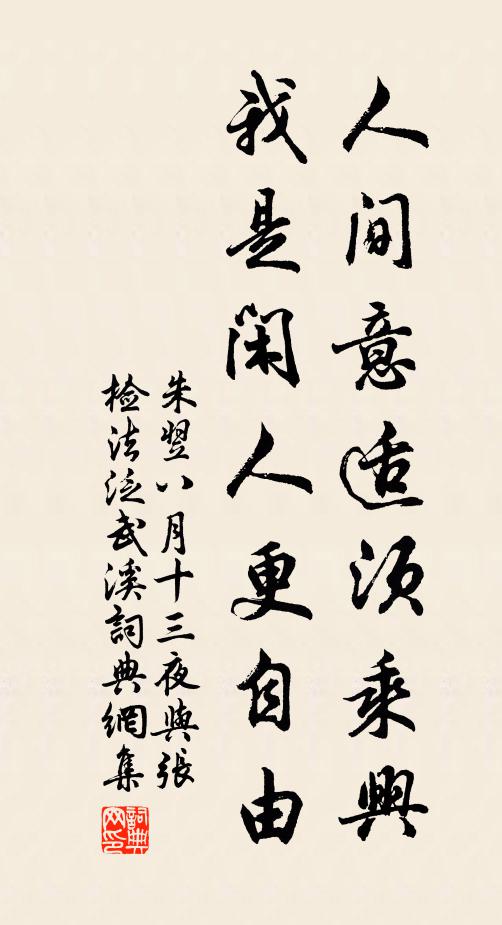 人间意适须乘興
我是闲人更自由
朱翌八月十三夜與張
检法泛武溪詞典網集
詞典
网印